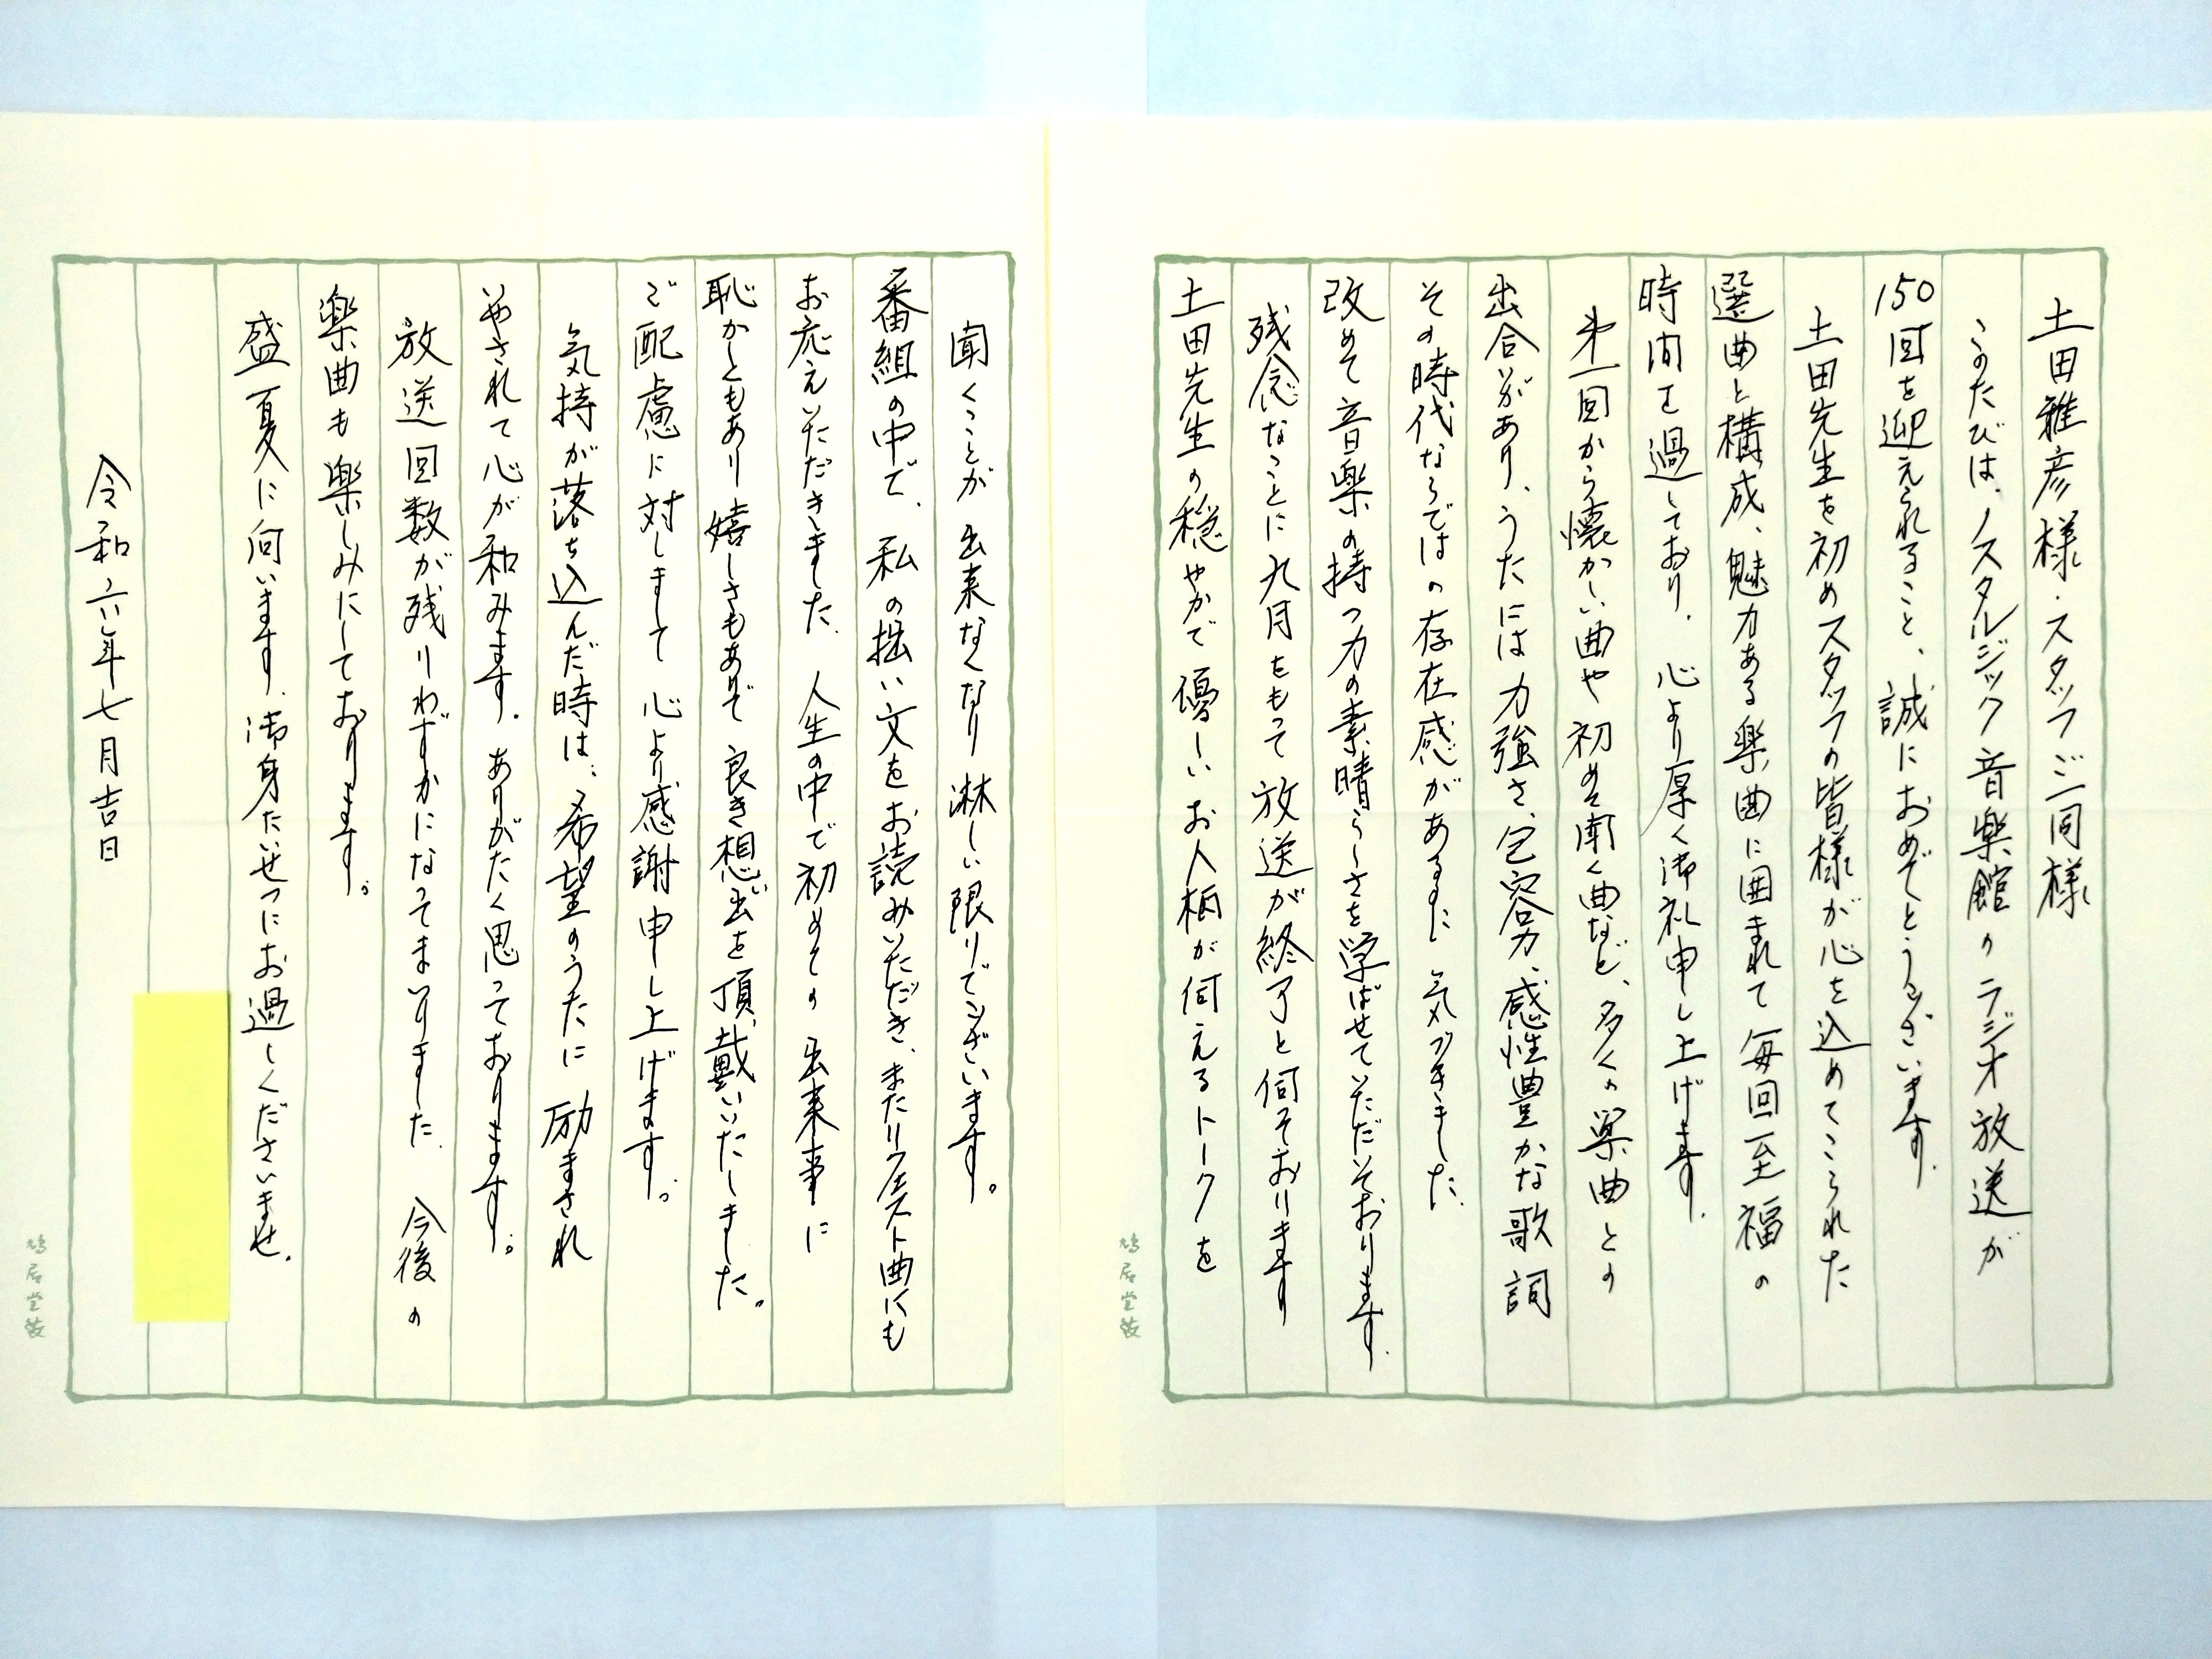 土田雅彦様・スタッフご一同様
このたびは、ノスタルジック音楽館のラジオ放送が
150回を迎えられること、誠におめでとうございます。
土田先生を初めスタッフの皆様が心を込めてこられた
選曲と構成、魅力ある楽曲に囲まれて毎回至福の
時間を過しており、心より厚く御礼申し上げます。
第一回から懐かしい曲や初めて聞く曲など、多くの楽曲との
出合いがあり、うたには力強さ、包容力、感性豊かな歌詞
その時代ならではの存在感があるように気づきました。
改めて音楽の持つ力の素晴らしさを学ばせていただいております。
残念なことに九月をもって放送が終了と伺っております
土田先生の穏やかで優しいお人柄が伺えるトークを
聞くことが出来なくなり淋しい限りでございます。
番組の中で、私の拙い文をお読みいただき、またリクエスト曲にも
お応えいただきました、人生の中で初めての出来事に
恥かしくもあり嬉しさもありで良き想い出を頂戴いたしました。
ご配慮に対しまして心より感謝申し上げます。
気持が落ち込んだ時は、希望のうたに励まされ
いやされて心が和みます。ありがたく思っております。
放送回数が残りわずかになってまいりました、今後の
楽曲も楽しみにしております。
盛夏に向います、御身たいせつにお過しくださいませ。
令和六年七月吉日
鳩居堂製
鳩居堂製